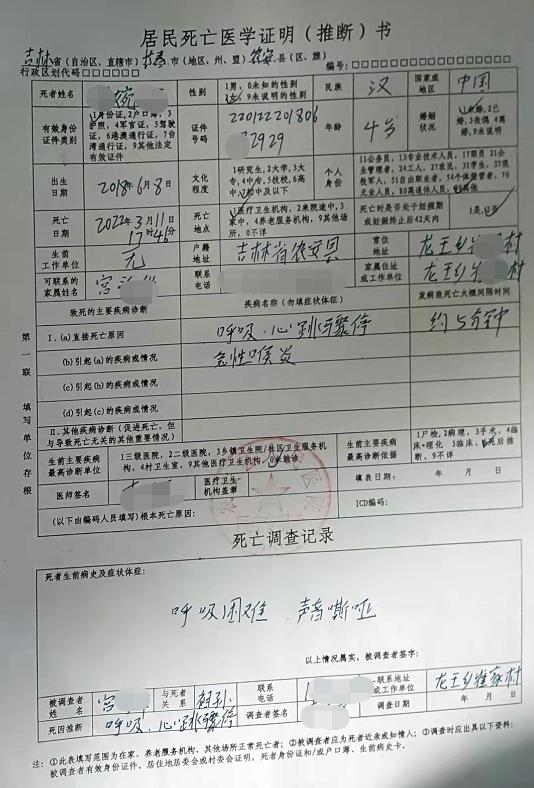 居民死亡医学证明（推断）书
吉林省（自治区、直辖市）长春市（地区、州、盟）农安县（区、旗）
行政区划代码□□□□□□ 编号：□□□□□□-□□□□□□□□
死者姓名 性别 1男，0未知的性别 2女，9未说明的性别 民族 汉 国家或地区 中国
有效身份证件类别 1身份证，2户口簿，3护照，4军官证，5驾驶证，6港澳通行证，7台湾通行证，9其他法定有效证件 证件号码 年龄 4岁 婚姻状况 1未婚，2已婚，3丧偶 4离婚，9未说明
出生日期 2018年6月8日 文化程度 1研究生，2大学，3大专，4中专，5技校，6高中，7初中及以下 个人身份 11公务员，13专业技术人员，17职员 21企业管理者，24工人，27农民，31学生，37现役军人，51自由职业者，54个体经营者，70无业人员，80离退休人员，90其他
死亡日期 2022年3月11日17时46分 死亡地点 1医疗卫生机构，2来院途中，3家中，4养老服务机构，9其他场所，0不详 死亡时是否处于妊娠期或妊娠终止后42天内 1是，2否
生前工作单位 无 户籍地址 吉林省农安县 常住地址 龙王乡 村
可联系的家属姓名 宫 联系电话 家属住址或工作单位 龙王乡 村
致死的主要疾病诊断 疾病名称（勿填症状体征） 发病致死亡大概间隔时间
第一联 填写单位存根
Ⅰ.(a)直接死亡原因 呼吸.心跳骤停 约5分钟
(b)引起(a)的疾病或情况 急性喉炎
(c)引起(b)的疾病或情况
(d)引起(c)的疾病或情况
Ⅱ.其他疾病诊断（促进死亡，但与导致死亡无关的其他重要情况）
生前主要疾病最高诊断单位 1三级医院，2二级医院，3乡镇卫生院/社区卫生服务机构，4村卫生室，9其他医疗卫生机构，0未就诊 生前主要疾病最高诊断依据 1尸检，2病理，3手术，4临床+理化 5临床，6死后推断，9不详
医师签名 医疗卫生机构盖章 填表日期： 年 月 日
(以下由编码人员填写)根本死亡原因： ICD编码：
死亡调查记录
死者生前病史及症状体征：
呼吸困难 声音嘶哑
以上情况属实，被调查者签字：
被调查者姓名 宫 与死者关系 祖孙 联系电话 联系地址或工作单位 龙王乡崔家村
死因推断 呼吸、心跳骤停 调查者签名 调查日期 年 月 日
注：①此表填写范围为在家、养老服务机构、其他场所正常死亡者；②被调查者应为死者近亲或知情人；③调查时应出具以下资料：
被调查者有效身份证件，居住地居委会或村委会证明，死者身份证和/或户口簿、生前病史卡。